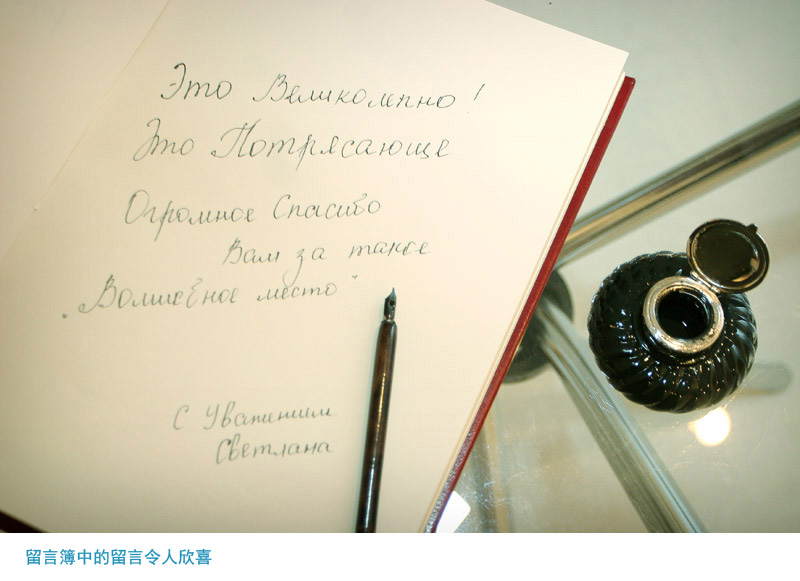 Это Великолепно!
Это Потрясающе
Огромное Спасибо
Вам за такое
„Волшебное место"
С Уважением
Светлана
留言簿中的留言令人欣喜